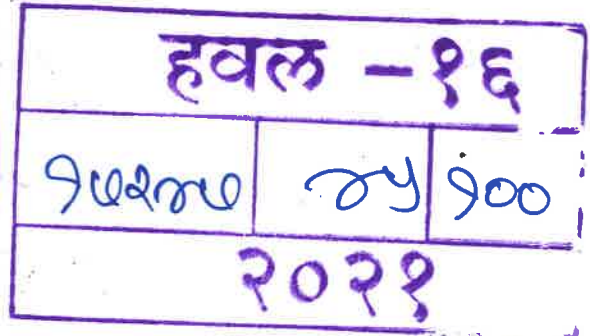 हवल - १६
१७२४७ ४५ १००
२०२१